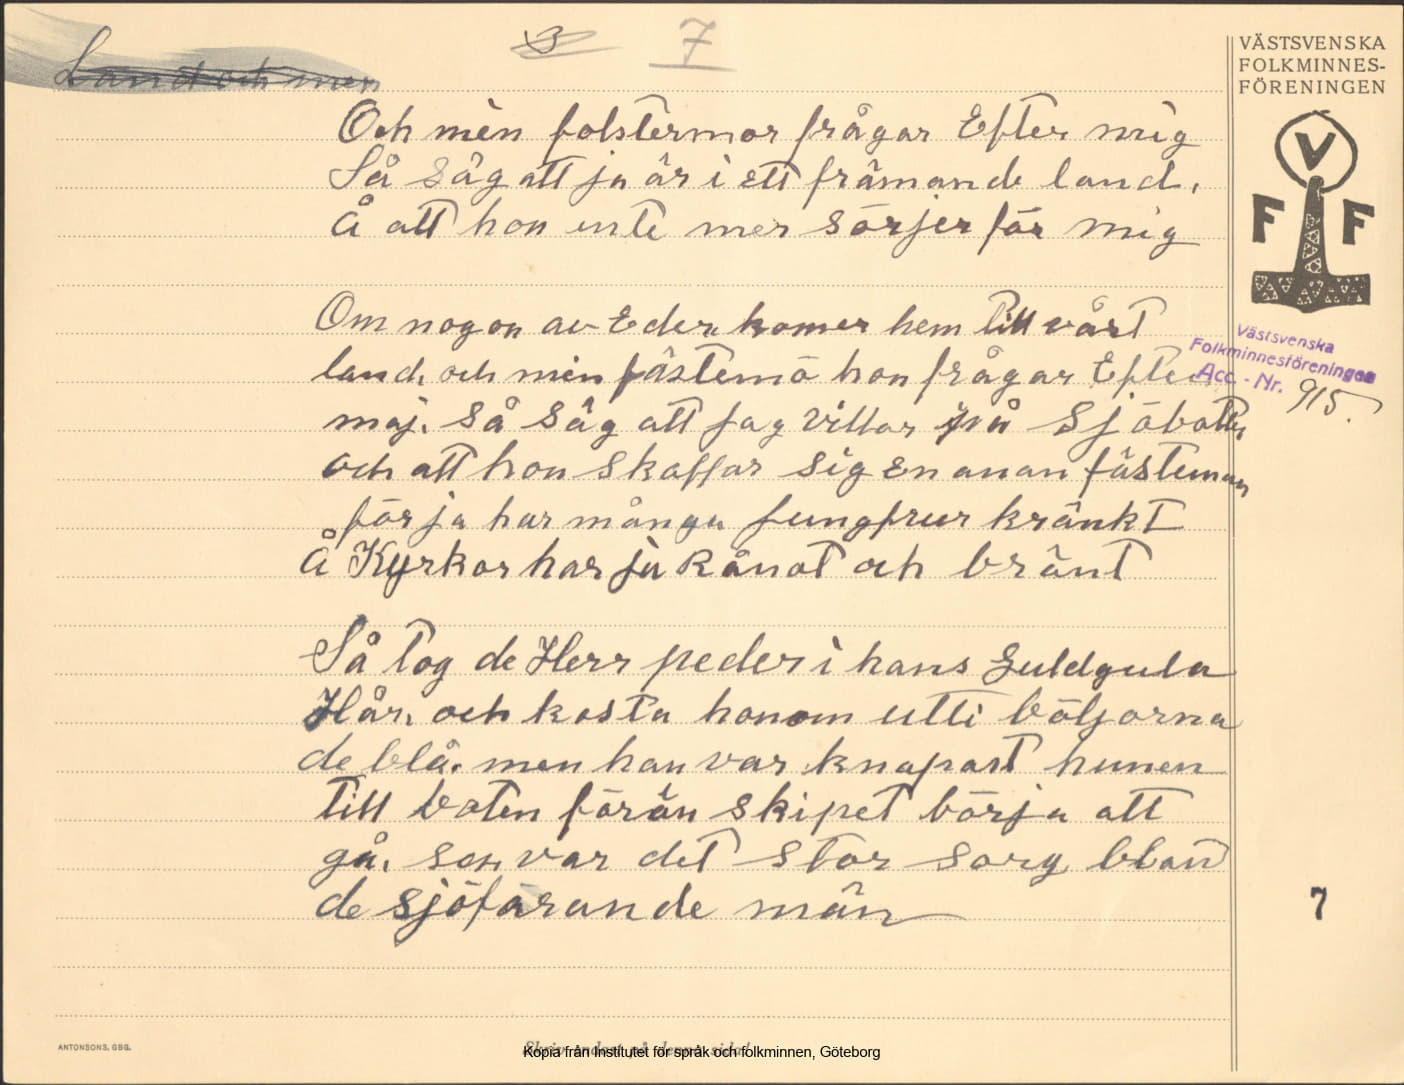 7
VÄSTSVENSKA
FOLKMINNES-
FÖRENINGEN
V
F F
Land och men
Och min folstermor frågar Efter mig
Så säg att ja är i ett främande land,
Å att hon inte mer sörjer för mig
Om nogon av Eder komer hem till vårt
land, och min fästemö hon frågar Efter
maj. så säg att jag villar på Sjöbotten
och att hon skaffar sig en anan fästeman
för ja har många jungfrur kränkt
Å Kyrkor har ja Rånat och bränt
Västsvenska
Folkminnesföreningen
Acc. - Nr. 915.
Så tog de Herr peder i hans Guldgula
Hår, och kasta honom utti böljorna
de blå. men han var knapast hunen
till boten förän skipet börja att
gå. sen var det stor sorg bland
de sjöfarande män
7
ANTONSONS, GBG.
Skriv endast på denna sida!
Kopia från Institutet för språk och folkminnen, Göteborg